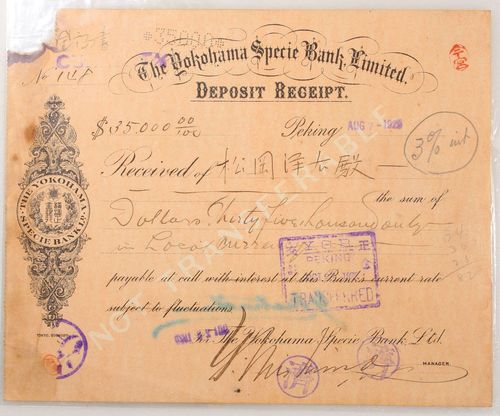 *35000*
The Yokohama Specie Bank, Limited.
DEPOSIT RECEIPT.
$35.000 00/100
Peking AUG 7 - 192
3% int
Received of 松岡洋右殿
the sum of
Dollars Thirty Five thousand only
in Local Currency
payable at call with interest at this Banks current rate
subject to fluctuations.
THE YOKOHAMA SPECIE BANK LD
NOT TRANSFERABLE
PEKING
TRANSFERRED
For The Yokohama Specie Bank, Ltd.
MANAGER.